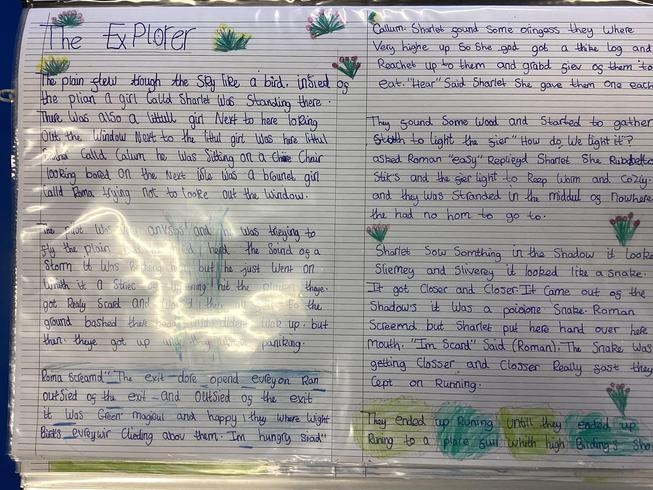 The Explorer
The plain flew though the Sky like a bird. intied of
the plian a girl Calld Sharlet Was Standing there.
There Was also a littull girl Next to here loking
Out the Window Next to the littul girl Was here littul
Calld Calum he Was Sitting on a Chair
looking bored On the Next isle was a brounet girl
Calld Roma trying not to looke out the Window.
The pilot Was and Was treying to
fly the plain the Sound of a
Storm it Was but he just Went on
Whith it a hit the
got Realy scard and the
ground bashed up. but
than they got up paniking.
Roma screamd" The exit dore opend evreyon Ran
outsied of the exit and Outsied of the exit
it Was Green magical and happy they Where Wight
Birds evreywir Clieding abow them. Im hungry Said"
Callum. Sharlet found Some oringass they Where
Very highe up So She god got a thike log and
Reachet up to them and grabd fiev of them to
eat. "Hear" Said Sharlet She gave them One each
They found Some Wood and Started to gather
to light the fier" How do We light it"?
asked Roman "easy" Repliegd Sharlet She
Stiks and the fier light to Keep Worm and Cozly.
and they was Stranded in the middul of Nowhere
the had no hom to go to.
Sharlet Sow Somthing in the Shadow it looke
Sliemey and Sliverey it looked like a snake.
It got Closer and Closer. It Came out of the
Shadow's it Was a poizione Snake. Roman
Screemd but Sharlet put here hand over here
Mouth. "I'm Scard" Said (Roman). The Snake Was
getting Closser and Closser Really fast they
Cept on Running.
They ended up Runing Until they ended up
Runing to a place full Whith high Birding's She